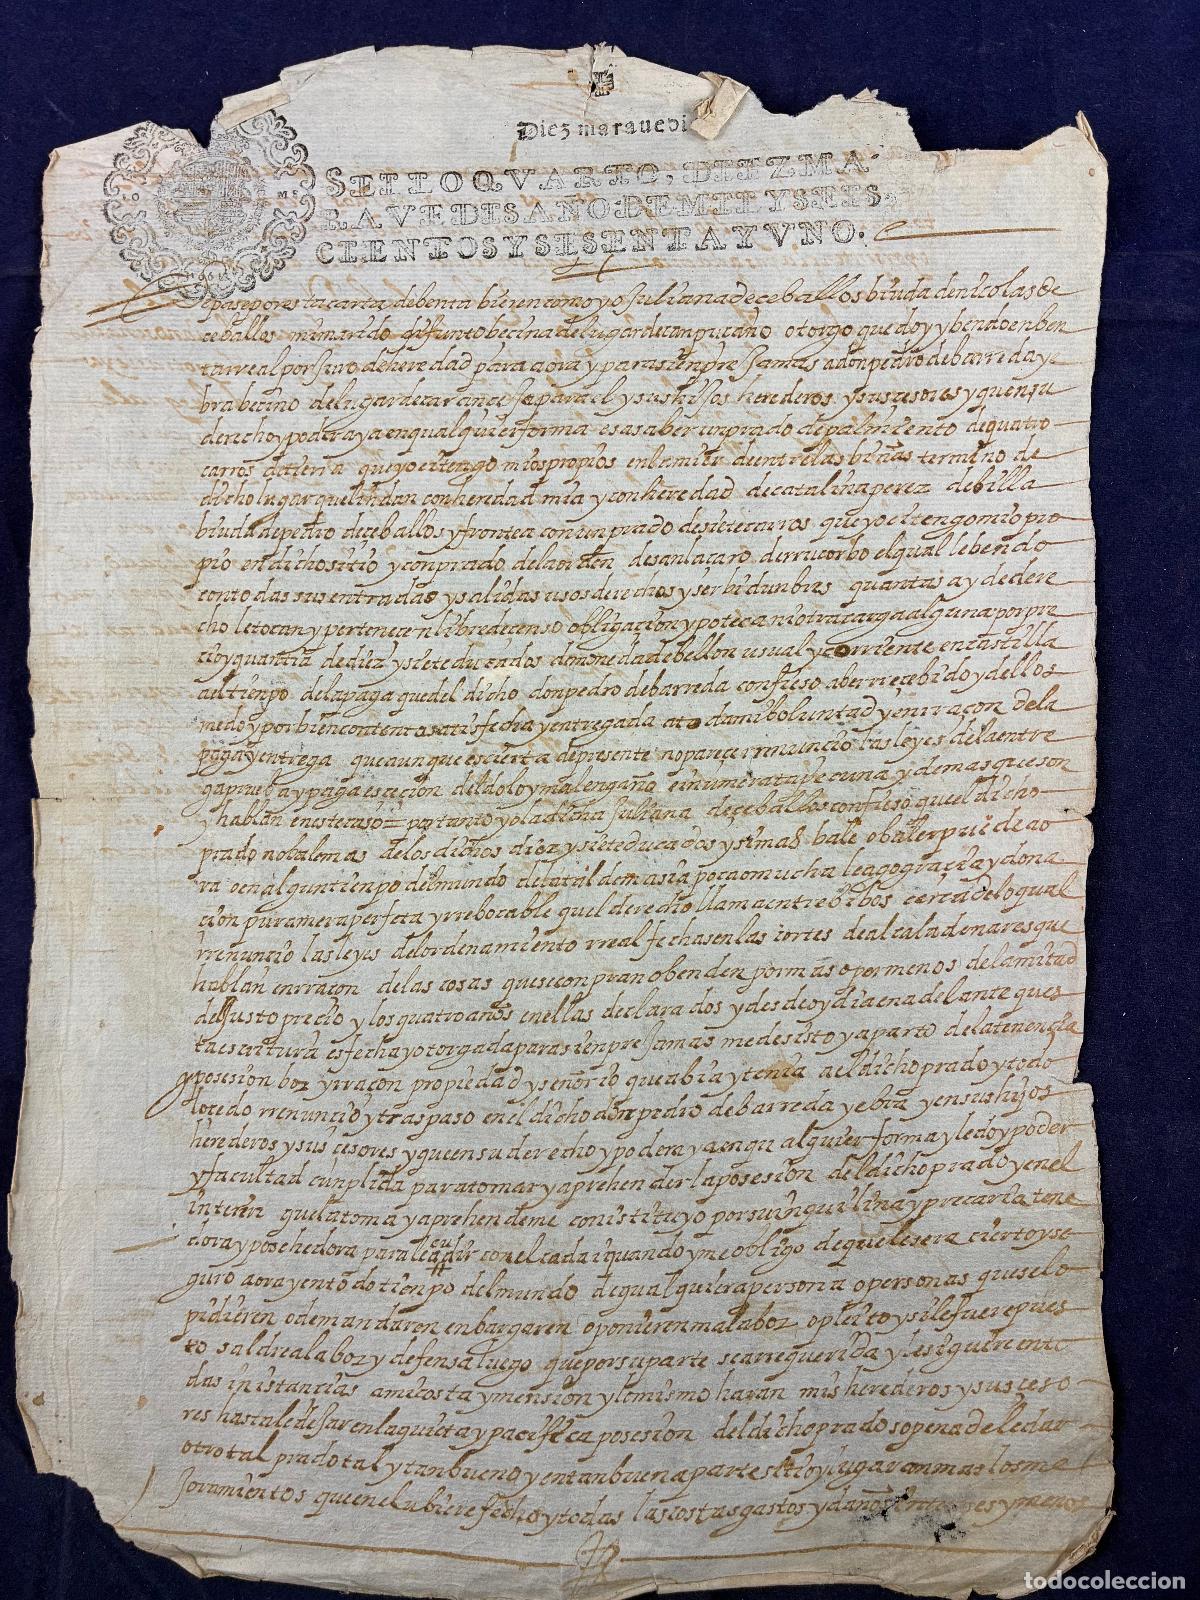 Diez maravedi
SELLOQVARTO, DIEZMA-
RAVEDIS AÑO DE MIL Y SEIS-
CIENTOS Y SESENTA Y VNO.
Sepase por esta carta de benta bieren como yo Juliana de ceballos biuda de nicolas de
ceballos mi marido difunto becina del lugar de canpuçano otorgo que doy y bendo en ben
ta rreal por Juro de heredad para aora y para sienpre Jamas a don pedro de barreda ye
bra becino del lugar de para el y sus hijos herederos y suscesores y quen su
derecho y podera ya en qualquier forma es a saber un prado de palmiento de quatro
carros de tierra que yo e i tengo mios propios en la mier de entrelasbiñas termino de
dicho lugar que lindan con heredad mia y con heredad de catalina perez de billa
biuda de pedro de ceballos y frontea con un prado de siete carros que yo e i tengo mio pro
pio en dicho sitio y con prado de la orden de san laçaro de el qual le bendo
con todas sus entradas y salidas usos derechos y serbidunbres quantas a y de dere
cho le tocan y pertenecen libre de censo obligacion ypoteca ni otra carga alguna por pre
cio y quantia de diez y siete ducados de moneda de bellon usual y corriente en castilla
al tienpo de la paga que del dicho don pedro de barreda confieso aber rrecebido y dellos
me doy por bien contento satisfecha y entregada a toda mi boluntad y en rraçon de la
paga y entrega que aunque es cierta de presente no parece rrenuncio las leyes de la entre
ga prueba y paga escecion del dolo y mal engaño e inumerata pecunia y demas que son
y hablan en este caso = por tanto yo la dicha Juliana de ceballos confieso que el dicho
prado no bale mas de los dichos diez y siete ducados y si mas bale o baler puede ao
ra o en algun tienpo del mundo de la tal demasia poca o mucha le ago gracia y dona
cion pura mera perfeta yrrebocable quel derecho llama entre bibos cerca de lo qual
rrenuncio las leyes del ordenamiento rreal fechas en las cortes de alcala de nares que
hablan en rraçon de las cosas que se conpran o benden por mas o por menos de la mitad
del Justo precio y los quatro años en ellas declarados y desde oy dia en adelante ques
ta escritura es fecha y otorgada para sienpre Jamas me desisto y aparto de la tenencia
posesion boz y rraçon propiedad y señorio que abia y tenia a el dicho prado y todo
lo cedo rrenuncio y traspaso en el dicho don pedro de barreda yebra y en sus hijos
herederos y suscesores y que en su derecho y podera ya en qualquier forma y le doy poder
y facultad cunplida para tomar y aprehender la posesion del dicho prado y en el
interin que la toma y aprehende me constituyo por su inquilina y precaria tene
dora y posehedora para le acudir con el cada i quando y me obligo de que le sera cierto y se
guro aora y en todo tienpo del mundo de qualquiera persona o personas que se lo
pidieren o demandaren enbargaren o ponieren mala boz o pleito y si le fuere pues
to saldre a la boz y defensa luego que por su parte sea rrequerida y le siguire en to
das instancias a mi costa y mension y lo mismo haran mis herederos y susceso
res hasta le dejar en la quieta y pacifica posesion del dicho prado so pena de le dar
otro tal prado tal y tan bueno y en tan buena parte sitio y lugar con mas los me
Joramientos que en el ubiere fecho y todas las costas gastos y daños intereses y menos
todocoleccion